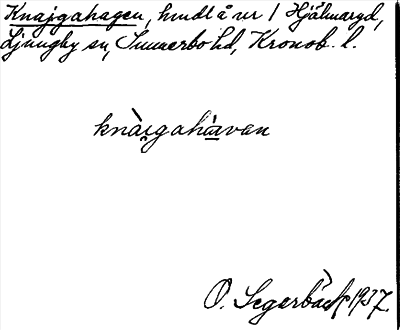 Knajgahagen, hmdl å nr 1 Hjälmaryd,
Ljungby sn, Sunnerbo hd, Kronob. l.
knài̯gahàvan
O. Segerbäck 1937.